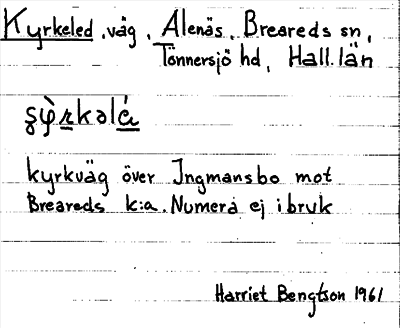 Kyrkeled, väg, Alenäs, Breareds sn,
Tönnersjö hd, Hall. län
kyrkväg över Ingmansbo mot
Breareds k:a. Numera ej i bruk
Harriet Bengtson 1961